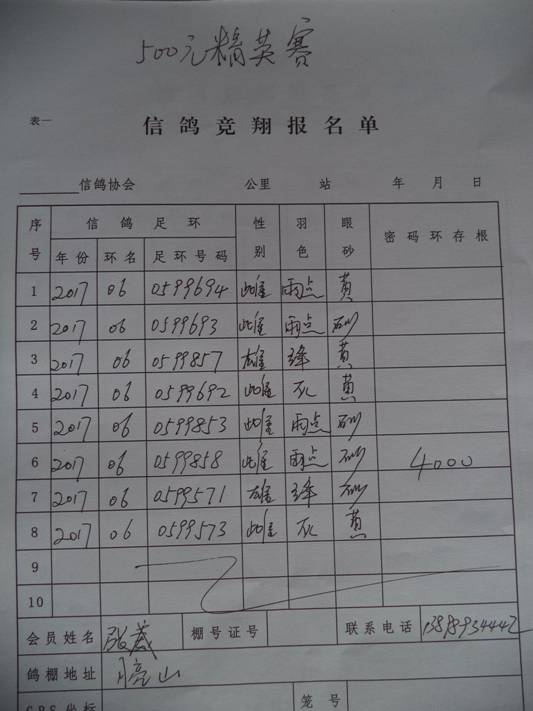 500元精英赛
表一
信鸽竞翔报名单
信鸽协会 公里 站 年 月 日
序号 信鸽足环 性别 羽色 眼砂 密码环存根
年份 环名 足环号码
1 2017 06 0599694 雌 雨点 黄
2 2017 06 0599693 雌 雨点 砂
3 2017 06 0599857 雄 绛 黄
4 2017 06 0599692 雌 灰 黄
5 2017 06 0599853 雌 雨点 砂
6 2017 06 0599858 雌 雨点 砂 4000
7 2017 06 0599571 雄 绛 砂
8 2017 06 0599573 雌 灰 黄
9
10
会员姓名 棚号证号 联系电话
鸽棚地址 山
GPS坐标 笼号